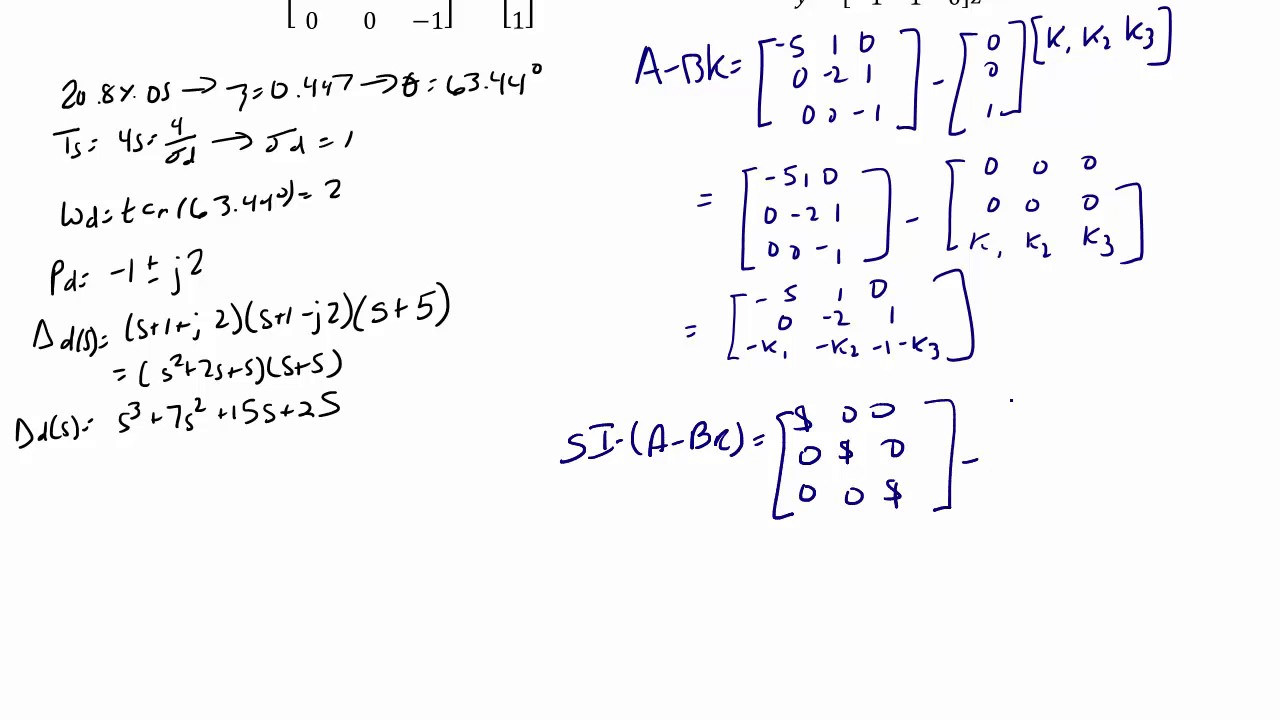 [ 0 0 -1 ] [ 1 ]
20.8% OS → ζ = 0.447 → θ = 63.44°
Ts = 4s = 4/σd → σd = 1
Wd = tan(63.44°) = 2
Pd = -1 ± j2
Δd(s) = (s+1+j2)(s+1-j2)(s+5)
= (s²+2s+5)(s+5)
Δd(s) = s³+7s²+15s+25
A-BK = [ -5 1 0
0 -2 1
0 0 -1 ] - [ 0
0
1 ] [K1 K2 K3]
= [ -5 1 0
0 -2 1
0 0 -1 ] - [ 0 0 0
0 0 0
K1 K2 K3 ]
= [ -5 1 0
0 -2 1
-K1 -K2 -1-K3 ]
SI-(A-BK) = [ s 0 0
0 s 0
0 0 s ] -